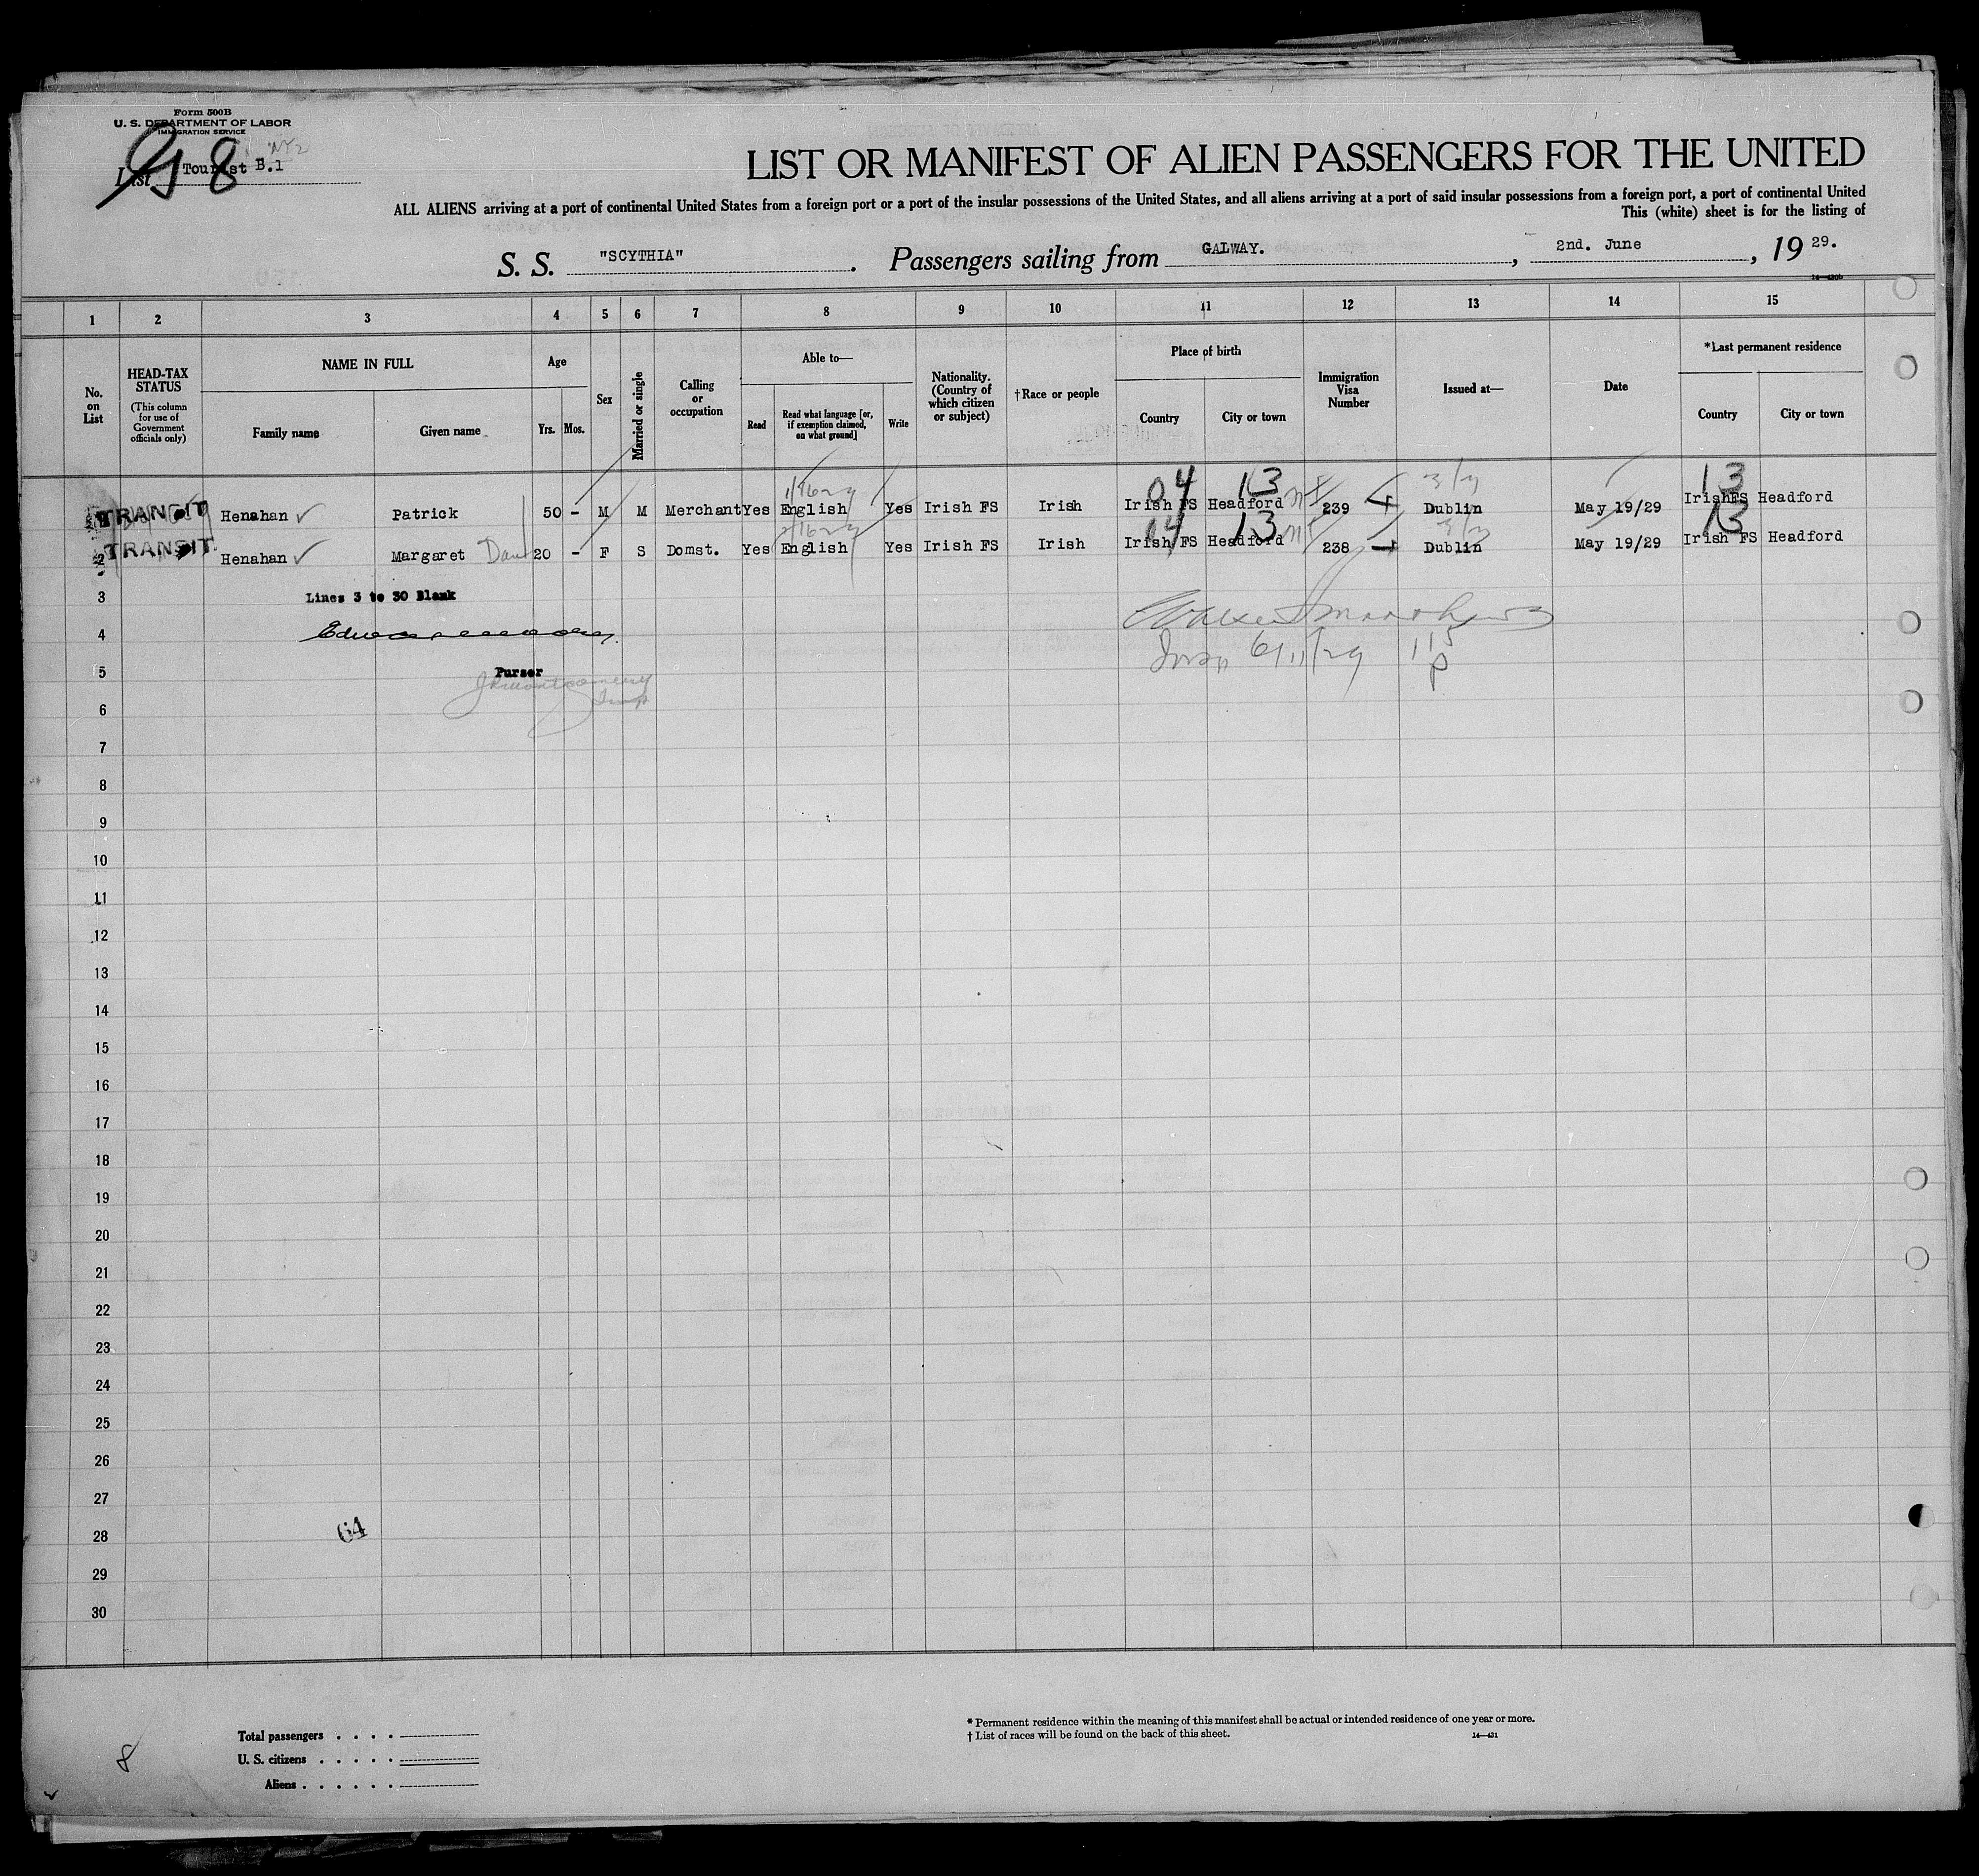 Form 500B
U. S. DEPARTMENT OF LABOR
IMMIGRATION SERVICE
List Tourist B.1
G 8
LIST OR MANIFEST OF ALIEN PASSENGERS FOR THE UNITED
ALL ALIENS arriving at a port of continental United States from a foreign port or a port of the insular possessions of the United States, and all aliens arriving at a port of said insular possessions from a foreign port, a port of continental United
This (white) sheet is for the listing of
S. S. "SCYTHIA" . Passengers sailing from GALWAY. , 2nd. June , 19 29.
1 2 3 4 5 6 7 8 9 10 11 12 13 14 15
No. on List
HEAD-TAX STATUS
(This column for use of Government officials only)
NAME IN FULL
Family name Given name
Age
Yrs. Mos.
Sex
Married or single
Calling or occupation
Able to—
Read
Read what language [or, if exemption claimed, on what ground]
Write
Nationality. (Country of which citizen or subject)
†Race or people
Place of birth
Country City or town
Immigration Visa Number
Issued at—
Date
*Last permanent residence
Country City or town
04 13 13
TRANSIT Henahan Patrick 50 - M M Merchant Yes English Yes Irish FS Irish Irish FS Headford 239 Dublin May 19/29 Irish FS Headford
04 13 13
2 TRANSIT Henahan Margaret 20 - F S Domst. Yes English Yes Irish FS Irish Irish FS Headford 238 Dublin May 19/29 Irish FS Headford
3 Lines 3 to 30 Blank
4
5 Purser
6/11/29
6
7
8
9
10
11
12
13
14
15
16
17
18
19
20
21
22
23
24
25
26
27
28
64
29
30
Total passengers . . . .
U. S. citizens . . . . .
Aliens . . . . . .
8
* Permanent residence within the meaning of this manifest shall be actual or intended residence of one year or more.
† List of races will be found on the back of this sheet.
14—421